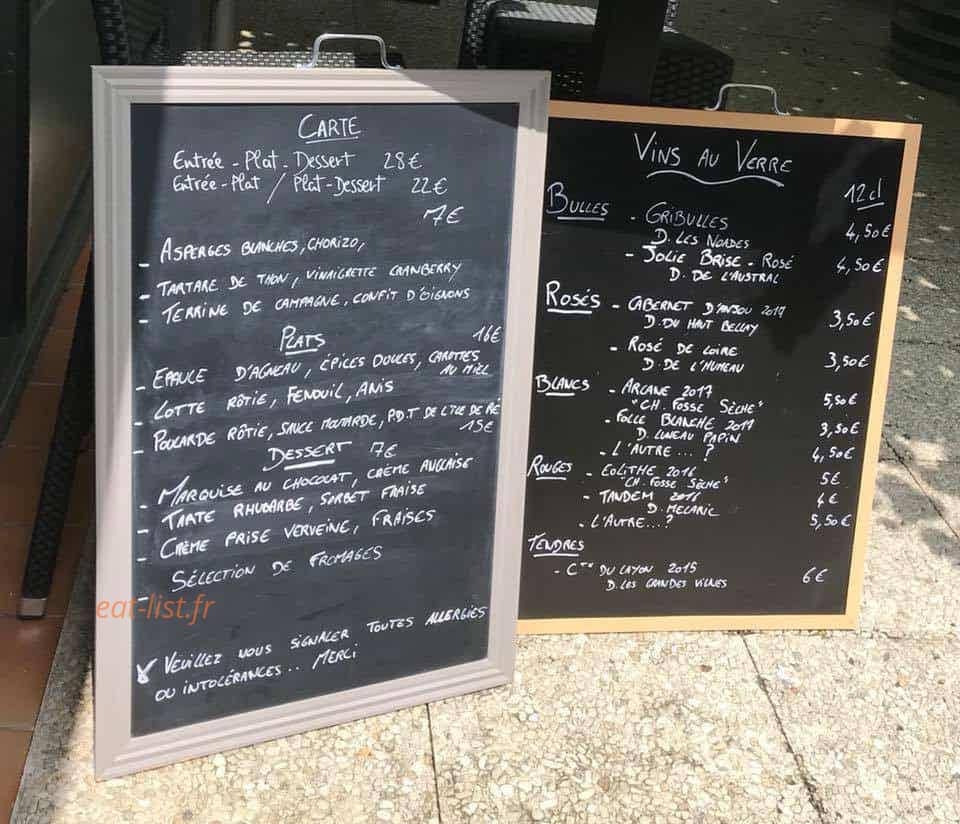 CARTE
Entrée - Plat - Dessert 28€
Entrée - Plat / Plat - Dessert 22€
7€
- ASPERGES BLANCHES, CHORIZO,
- TARTARE DE THON, VINAIGRETTE CRANBERRY
- TERRINE DE CAMPAGNE, CONFIT D'OIGNONS
PLATS 16€
- EPAULE D'AGNEAU, ÉPICES DOUCES, CAROTTES
AU MIEL
- LOTTE RÔTIE, FENOUIL, ANIS
- POULARDE RÔTIE, SAUCE MOUTARDE, P.D.T DE L'ILE DE RÉ
15€
DESSERT 7€
- MARQUISE AU CHOCOLAT, CRÈME ANGLAISE
- TARTE RHUBARBE, SORBET FRAISE
- CRÈME PRISE VERVEINE, FRAISES
- SÉLECTION DE FROMAGES
eat-list.fr
VEUILLEZ NOUS SIGNALER TOUTES ALLERGIES
OU INTOLÉRANCES.. MERCI
VINS AU VERRE
12cl
BULLES - GRIBULLES
D. LES NOADES 4,50€
- JOLIE BRISE - ROSÉ 4,50€
D. DE L'AUSTRAL
ROSÉS - CABERNET D'ANJOU 2017
D. DU HAUT BELLAY 3,50€
- ROSÉ DE LOIRE
D. DE L'HUMEAU 3,50€
BLANCS - ARCANE 2017 5,50€
"CH. FOSSE SÈCHE"
- FOLLE BLANCHE 2017 3,50€
D. LUNEAU PAPIN
- L'AUTRE ... ? 4,50€
ROUGES - EOLITHE 2016 5€
"CH. FOSSE SÈCHE"
- TANDEM 2016 4€
D. MELARIC
- L'AUTRE....? 5,50€
TENDRES
- CTX DU LAYON 2015 6€
D. LES GRANDES VIGNES